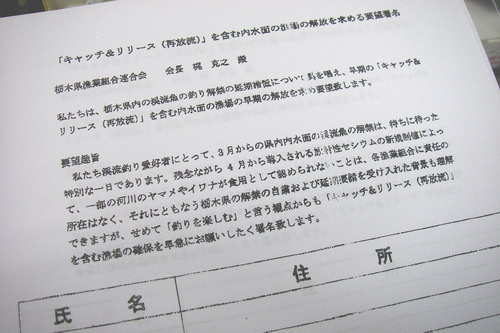 「キャッチ&リリース（再放流）」を含む内水面の漁場の解放を求める要望署名
栃木県漁業組合連合会　会長 梶 克之 殿
私たちは、栃木県内の渓流魚の釣り解禁の延期措置について異を唱え、早期の「キャッチ&
リリース（再放流）」を含む内水面の漁場の早期の解放を求め要望致します。
要望趣旨
私たち渓流釣り愛好者にとって、3月からの県内内水面の渓流魚の解禁は、待ちに待った
特別な一日であります。残念ながら4月から導入される放射性セシウムの新規制値によっ
て、一部の河川のヤマメやイワナが食用として認められないことは、各漁業組合に責任の
所在はなく、それにともなう栃木県の解禁の自粛および延期要請を受け入れた背景も理解
できますが、せめて「釣りを楽しむ」と言う観点からも「キャッチ&リリース（再放流）」
を含む漁場の確保を早急にお願いしたく署名致します。
氏　名　住　所